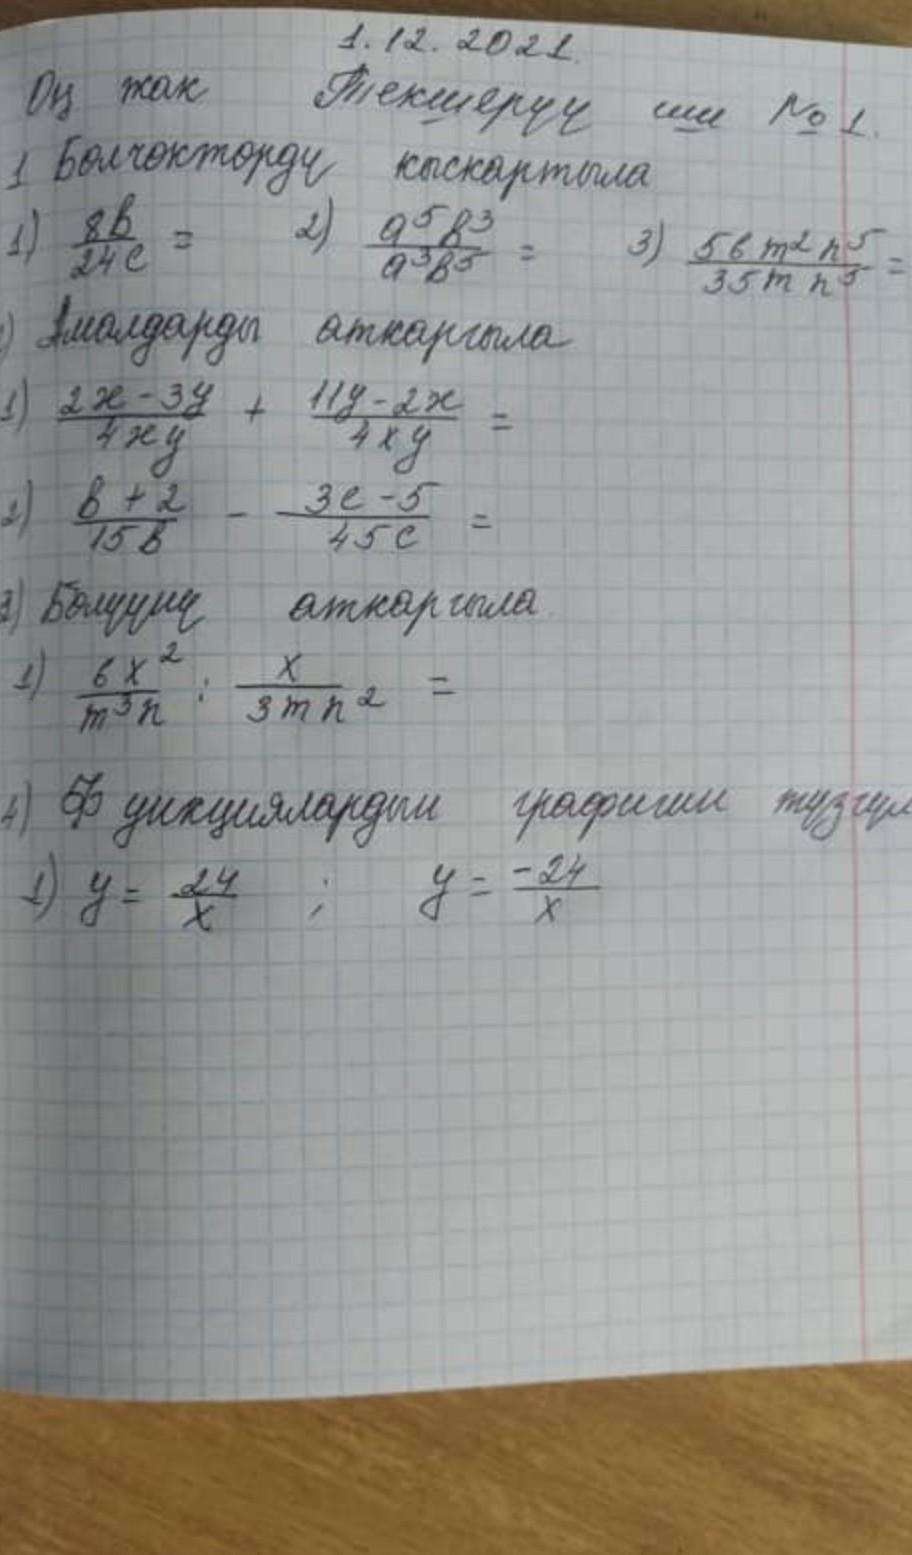 1.12.2021.
Оң жак Текшерүү иш №1.
1 Бөлчөктөрдү кыскартыла
1) 8b/24c = 2) a⁵b³/a³b⁵ = 3) 56m²n⁵/35mn⁵ =
) Амалдарды аткаргыла
1) 2x-3y/4xy + 11y-2x/4xy =
2) b+2/15b - 3c-5/45c =
3) Бөлүүнү аткаргыла
1) 6x²/m³n : x/3mn² =
4) Функциялардын графигин түзгүл
1) y = 24/x ; y = -24/x